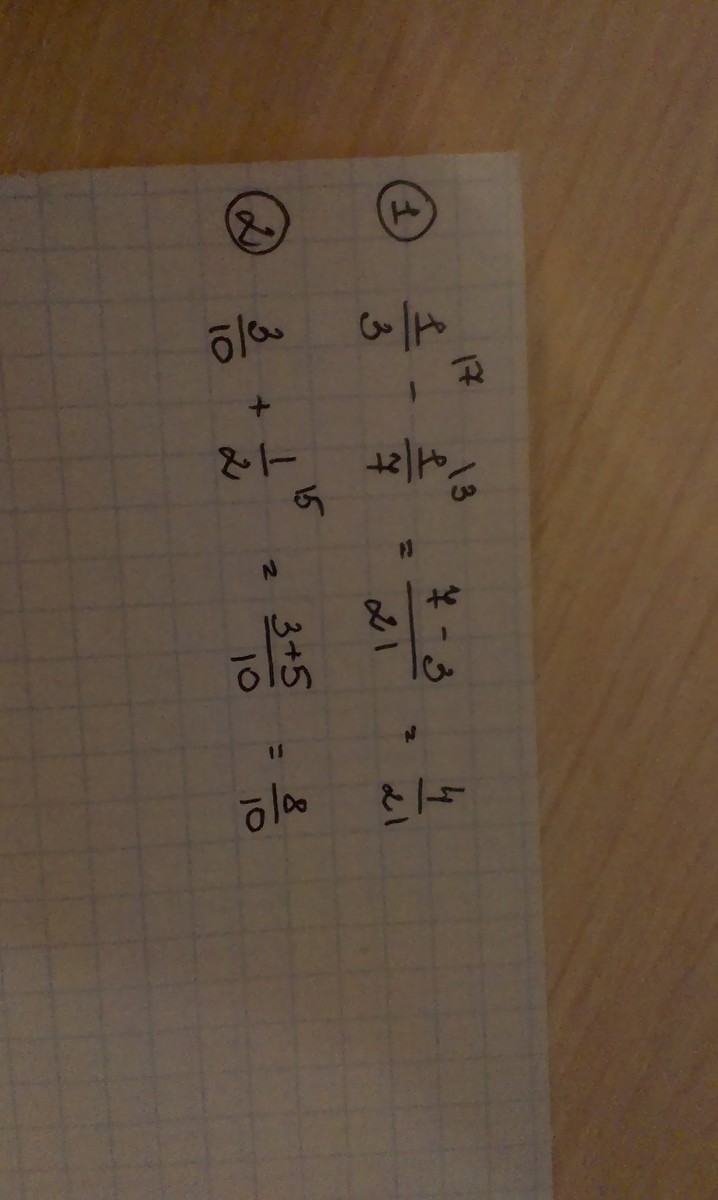 ① 1/3 \7 - 1/7 \3 = 7-3/21 = 4/21
② 3/10 + 1/2 \5 = 3+5/10 = 8/10